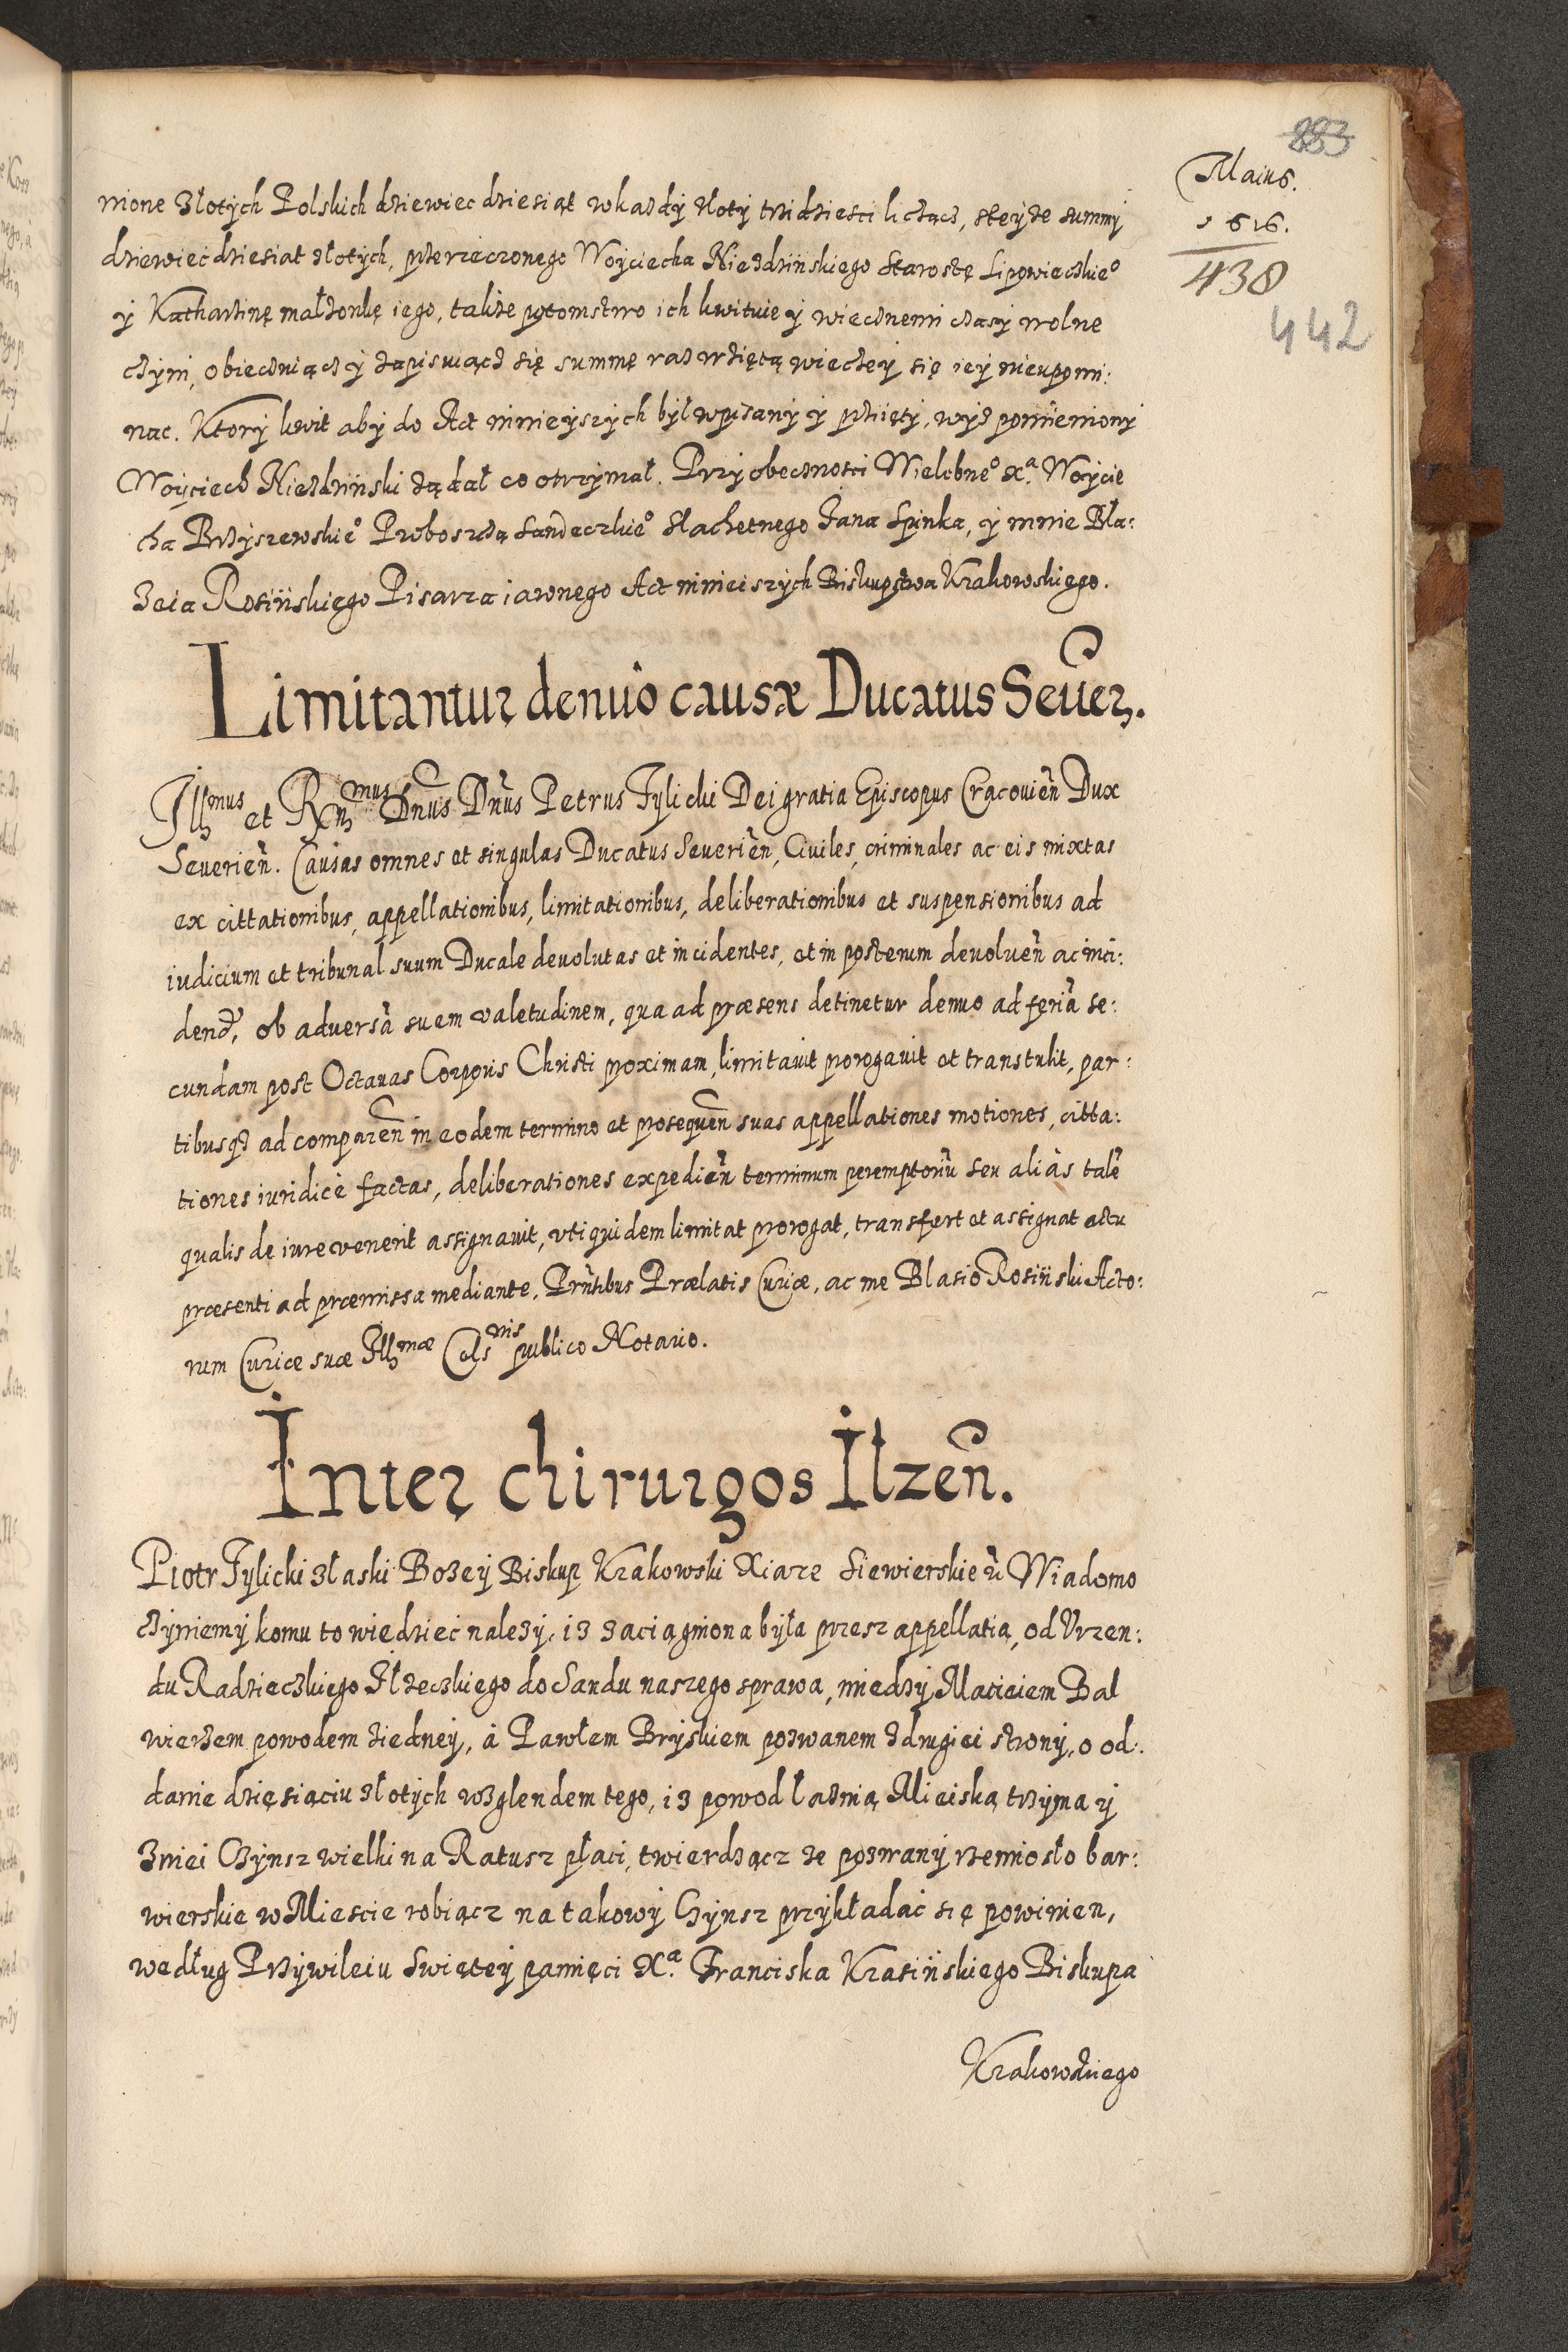 883
Maius.
1616.
438
442
nione złotych Polskich dziewiec dziesiąt w kazdy złoty trzidziesci licząc, steyze summy
dziewiećdziesiat złotych, przerzeczonego Woyciecha Niezdzinskiego Starostę Lipowieczkieo
y Katharzinę małzonkę iego, takze potomstwo ich kwituie y wiecznemi czasy wolne
czyni, obiecuiącz y zapisuiącz się summę raz wziętą wieczey się iey nieupomi:
nac. Ktory kwit aby do Act ninieyszych był wpisany y przięty, wyz pomieniony
Woyciech Niezdzinski ządał co otrzymał. Przy obecznosci Wielebneo Xa. Woycie
cha Brzyszewskieo Proboszcza Sandeczkieo Slachetnego Jana Spinka, y mnie Bła:
zeia Rosinskięgo Pisarza iawnego Act ninieiszych Biskupstwa Krakowskiego.
Limitantur denuo causæ Ducatus Seuer.
Illmus et Rndmus Dnus Dnus Petrus Tylicki Dei gratia Episcopus Cracouien Dux
Seuerien. Causas omnes et singulas Ducatus Seuerien, Ciuiles, criminales ac eis mixtas
ex cittationibus, appellationibus, limitationibus, deliberationibus et suspensionibus ad
iudicium et tribunal suum Ducale deuolutas et incidentes, et in posterum deuoluen ac inci:
dend, ob aduersa suem valetudinem, qua ad præsens detinetur denuo ad feria se:
cundam post Octauas Corporis Christi proximam, limitauit prorogauit et transtulit, par:
tibusq3 ad comparen in eodem termino et prosequen suas appellationes motiones, citta:
tiones iuridice factas, deliberationes expedien terminum peremptoriu seu alias tale
qualis de iure venerit assignauit, vti quidem limitat prorogat, transfert et assignat actu
præsenti ad præmissa mediante. Prntibus Prælatis Curiæ, ac me Blasio Rosinski Acto:
rum Curiæ suæ Illmæ Celsnis publico Notario.
Inter chirurgos Ilzen.
Piotr Tylicki z łaski Bozey Biskup Krakowski Xiaze Siewierskie ŭ Wiadomo
czyniemy komu to wiedziec nalezy, iz zaciągniona była przesz appellatią, od Vrzen:
du Radzieczkiego Iłzeczkiego do Sandu naszego sprawa, miedzy Macieiem Bal
wierzem powodem ziedney, à Pawłem Bryskiem pozwanem zdrugiei strony, o od:
danie dzięsiąciu złotych wzglendem tego, iz powod łaznią Mieiską trzyma y
zniei Czynsz wielki na Ratusz płaci, twierdząc ze pozwany rzemiosło bar:
wierskie w Miescie robiącz na takowy Czynsz przykładac się powinien,
według Przywileiu Swiętey pamięci Xa. Franciska Krasinskiego Biskupa
Krakowskiego